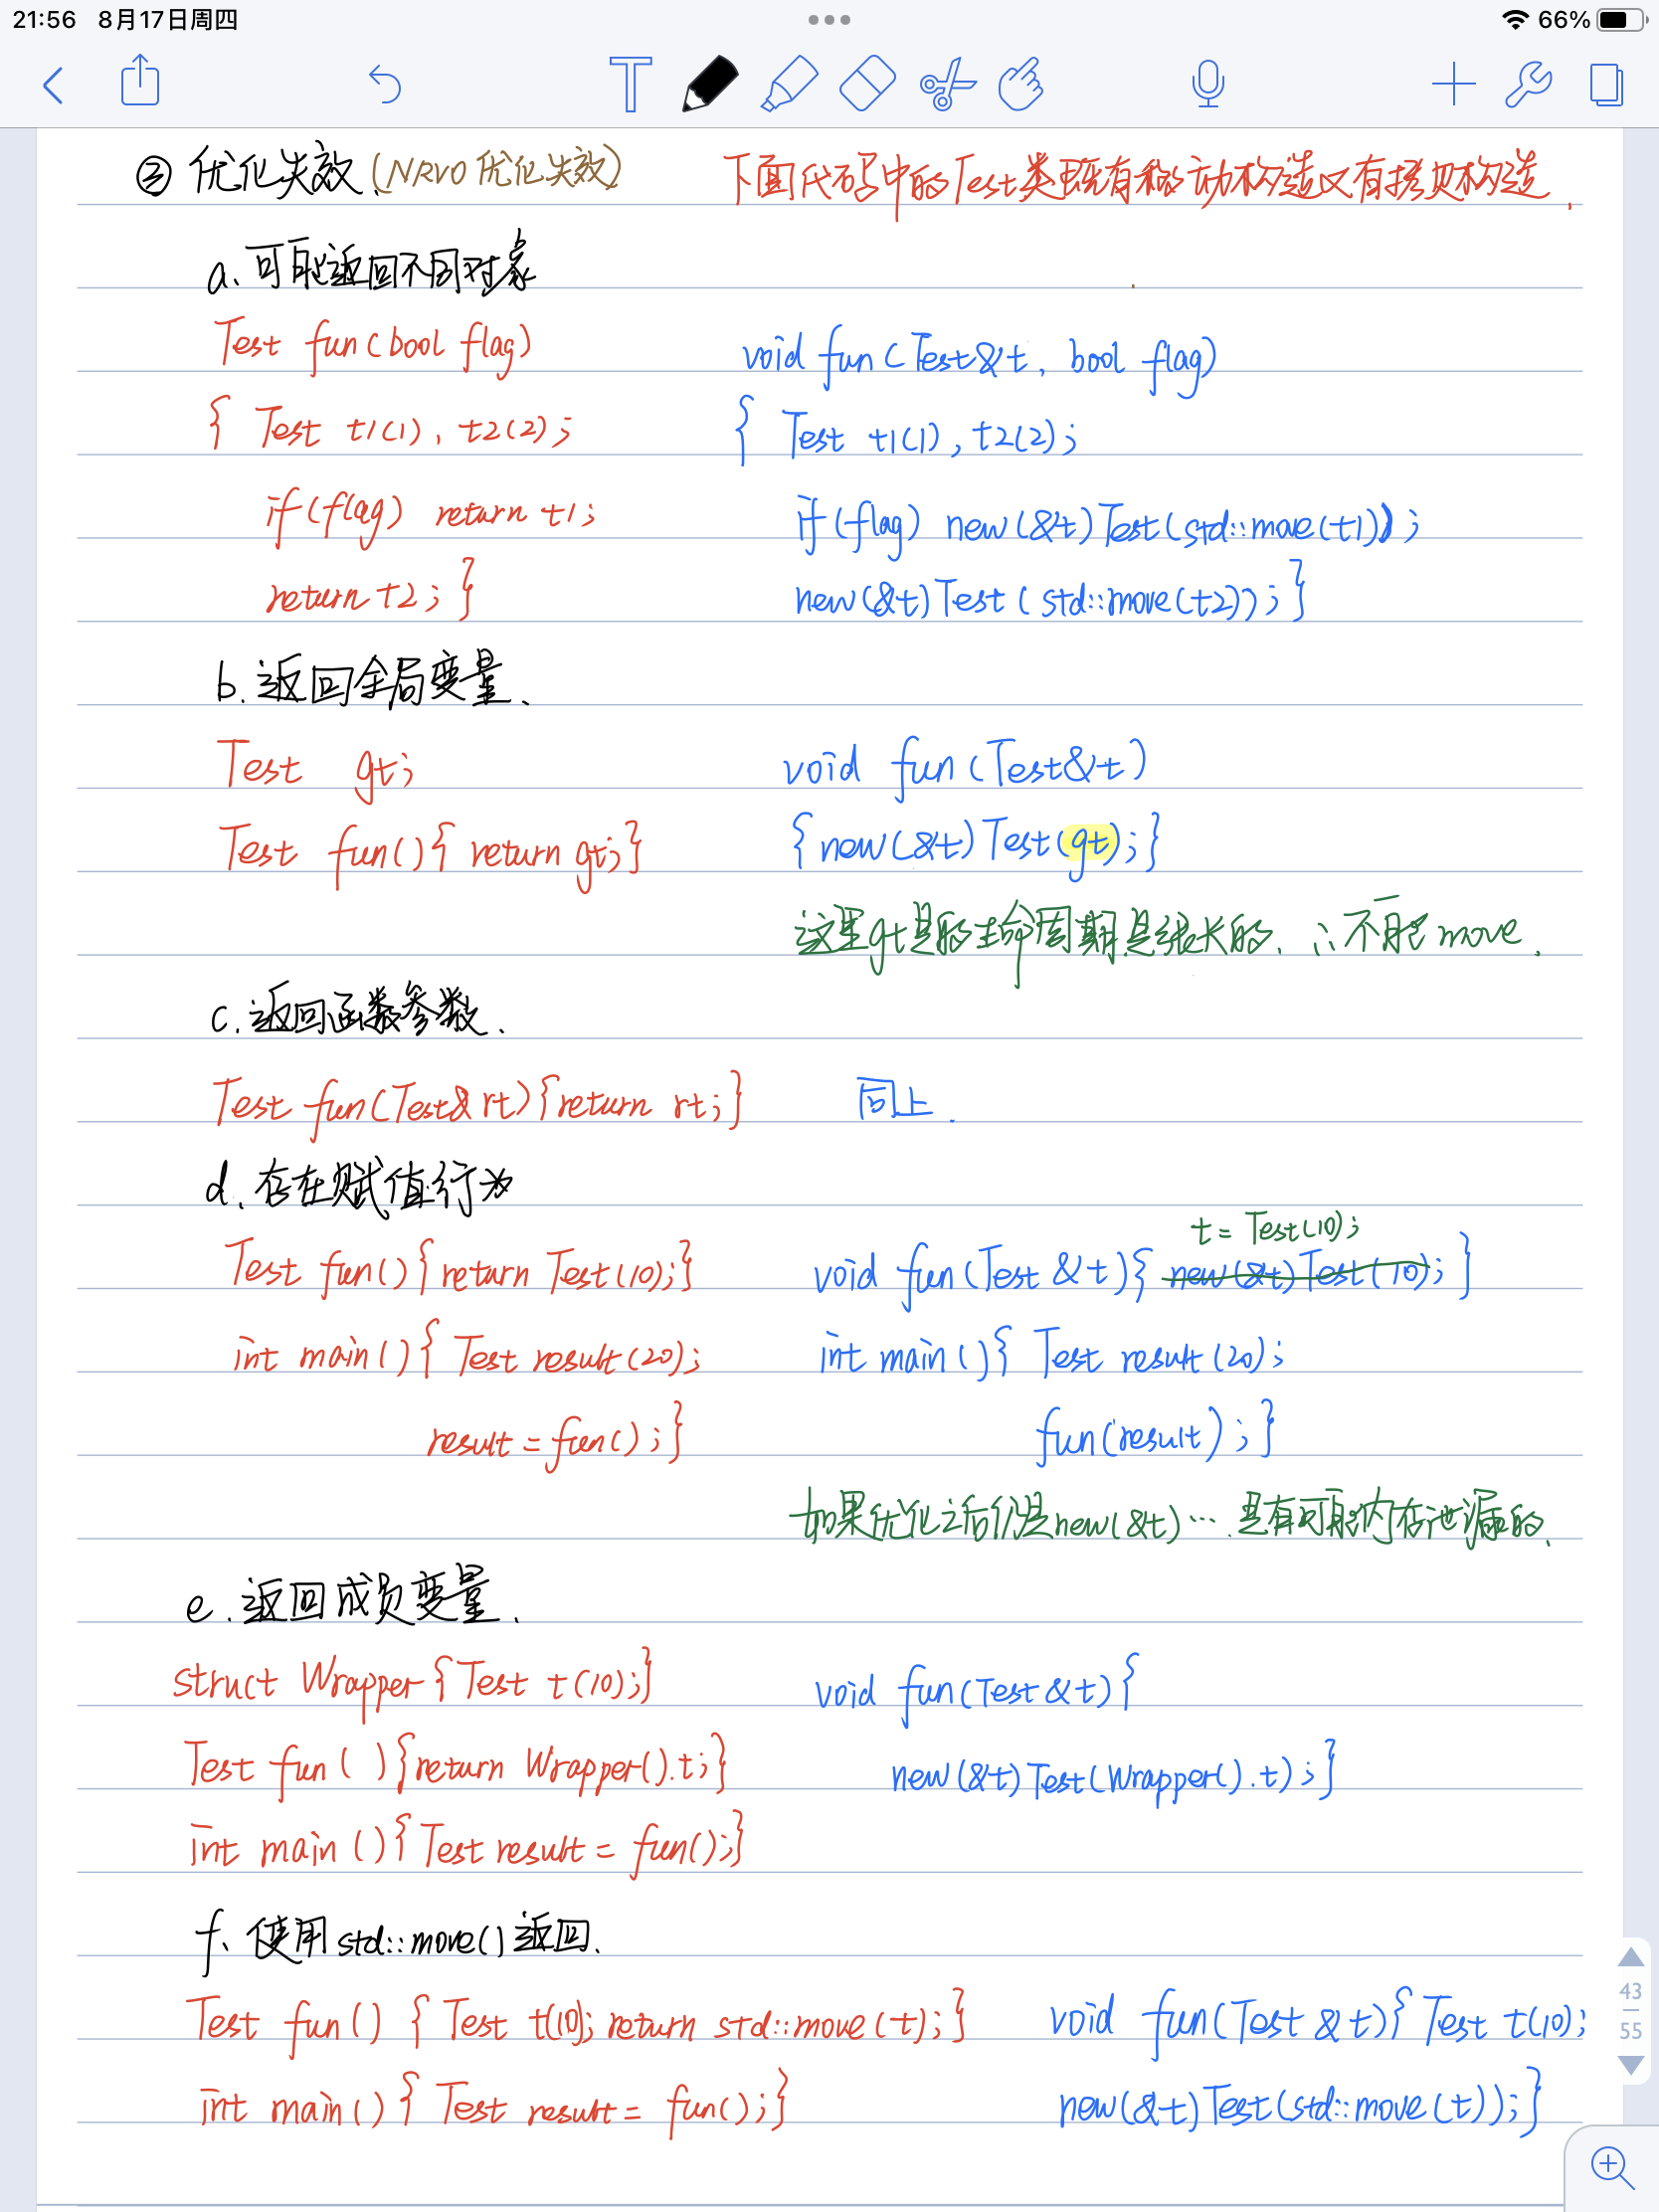 21:56 8月17日周四 66%
③ 优化失效、(NRVO 优化失效) 下面代码中的Test类既有移动构造又有拷贝构造.
a、可能返回不同对象
Test fun(bool flag) void fun(Test&t, bool flag)
{ Test t1(1), t2(2); { Test t1(1), t2(2);
if(flag) return t1; if(flag) new(&t)Test(std::move(t1));
return t2; } new(&t)Test(std::move(t2)); }
b. 返回全局变量、
Test gt; void fun(Test&t)
Test fun(){ return gt;} { new(&t)Test(gt); }
这里gt是的生命周期是很长的、∴不能move.
c. 返回函数参数、
Test fun(Test& rt){return rt;} 同上.
d、存在赋值行为
t = Test(10);
Test fun(){return Test(10);} void fun(Test &t){ new(&t)Test(10); }
int main(){ Test result(20); int main(){ Test result(20);
result = fun(); } fun(result); }
如果优化之后仍是new(&t)… 是有可能内存泄漏的、
e. 返回成员变量、
struct Wrapper{Test t(10);} void fun(Test &t){
Test fun( ){return Wrapper().t;} new(&t)Test(Wrapper().t); }
int main(){Test result = fun();}
f、使用std::move()返回.
Test fun() { Test t(10); return std::move(t); } void fun(Test &t){ Test t(10);
int main(){ Test result = fun();} new(&t)Test(std::move(t)); }
43
55